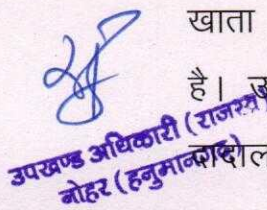 खाता
है।
उपखण्ड अधिकारी (राजस्व)
नोहर (हनुमानगढ़)